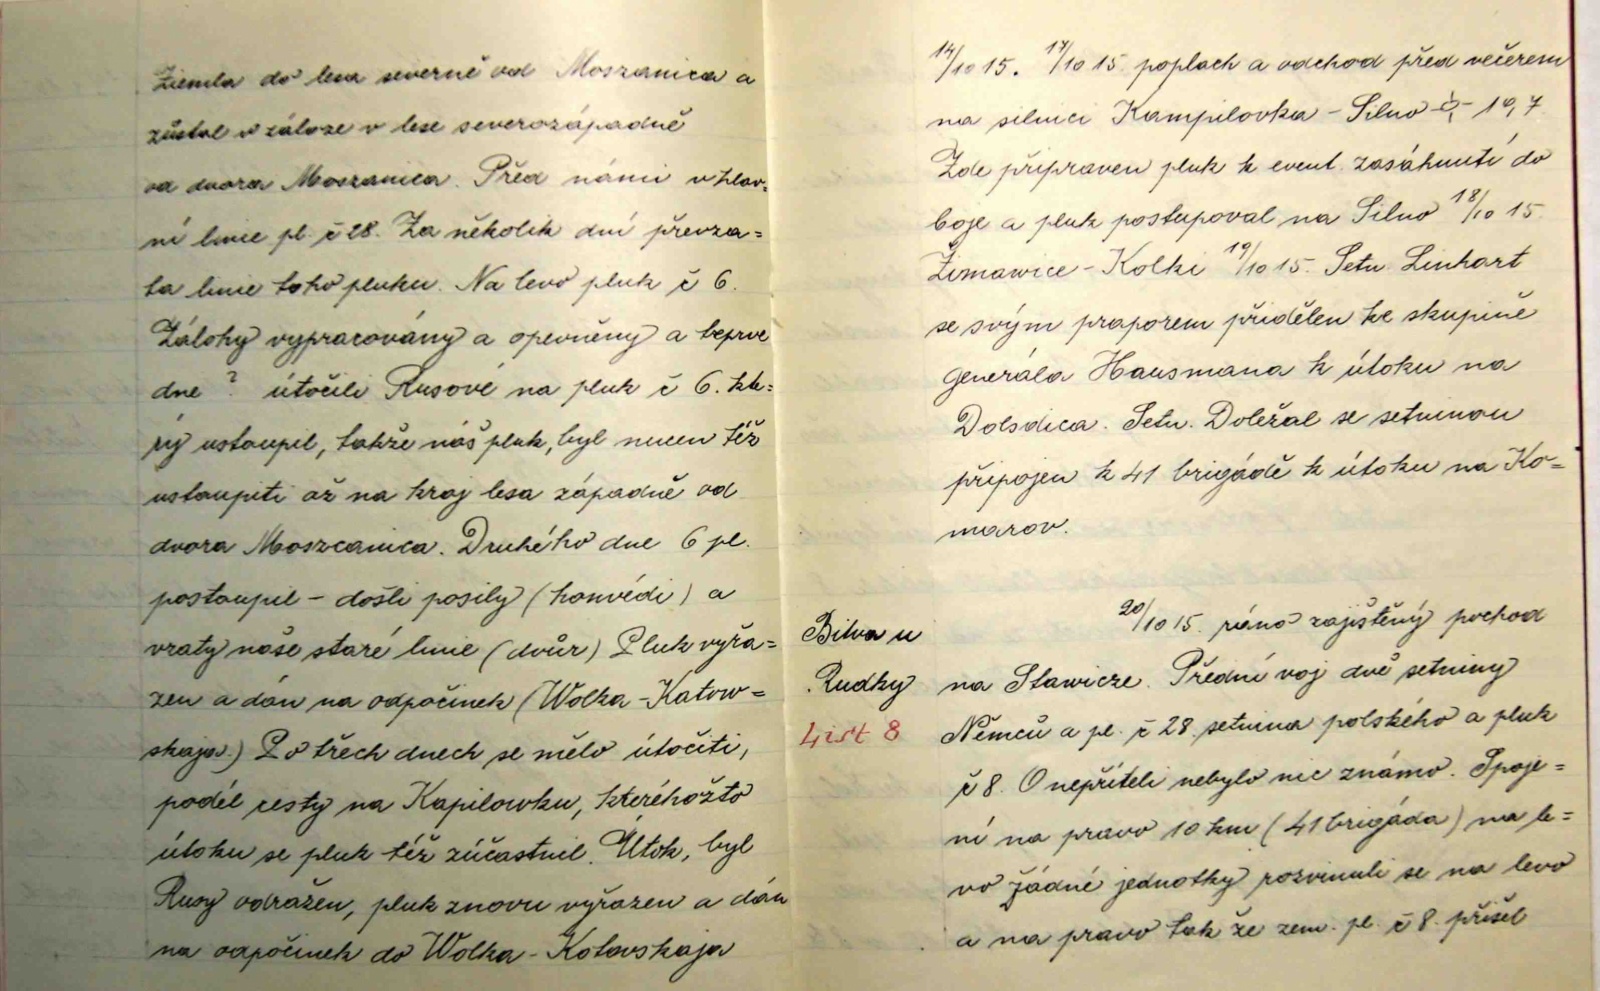 Ziemla do lesa severně od Moszanica a
zůstal v záloze v lese severozápadně
od dvora Moszanica. Před námi v hlav=
ní linie pl. č 28. Za několik dní převza=
ta linie toho pluku. Na levo pluk č 6.
Zálohy vypracovány a opevněny a teprve
dne ? útočili Rusové na pluk č 6. kte=
rý ustoupil, takže náš pluk, byl nucen též
ustoupiti až na kraj lesa západně od
dvora Moszcanica. Druhého dne 6 pl.
postoupil – došli posily (honvédi) a
vzaty naše staré linie (dvůr) Pluk vyřa=
zen a dán na odpočinek (Wolka - Katow=
skaja.) Po třech dnech se mělo útočiti,
podél cesty na Kapilowku, kteréhožto
útoku se pluk též zúčastnil. Útok, byl
Rusy odražen, pluk znovu vyřazen a dán
na odpočinek do Wolka - Kotovskaja
14/10 15. 17/10 15. poplach a odchod před večerem
na silnici Kampilovka – Silno 19,7
Zde připraven pluk k event. zasáhnutí do
boje a pluk postupoval na Silno 18/10 15.
Žimawice - Kolki 19/10 15. Setn. Linhart
se svým praporem přidělen ke skupině
generála Hausmana k útoku na
Dolsdica. Setn. Doležal se setninou
připojen k 41 brigádě k útoku na Ko=
marov.
Bitva u
Rudky
List 8
20/10 15. ráno zajištěný pochod
na Stawicze. Přední voj dvě setniny
Němců a pl. č 28. setnina polského a pluk
č 8. O nepříteli nebylo nic známo. Spoje=
ní na pravo 10 km (41 brigáda) na le=
vo žádné jednotky rozvinuli se na levo
a na pravo tak že zem. pl. č 8. přišel